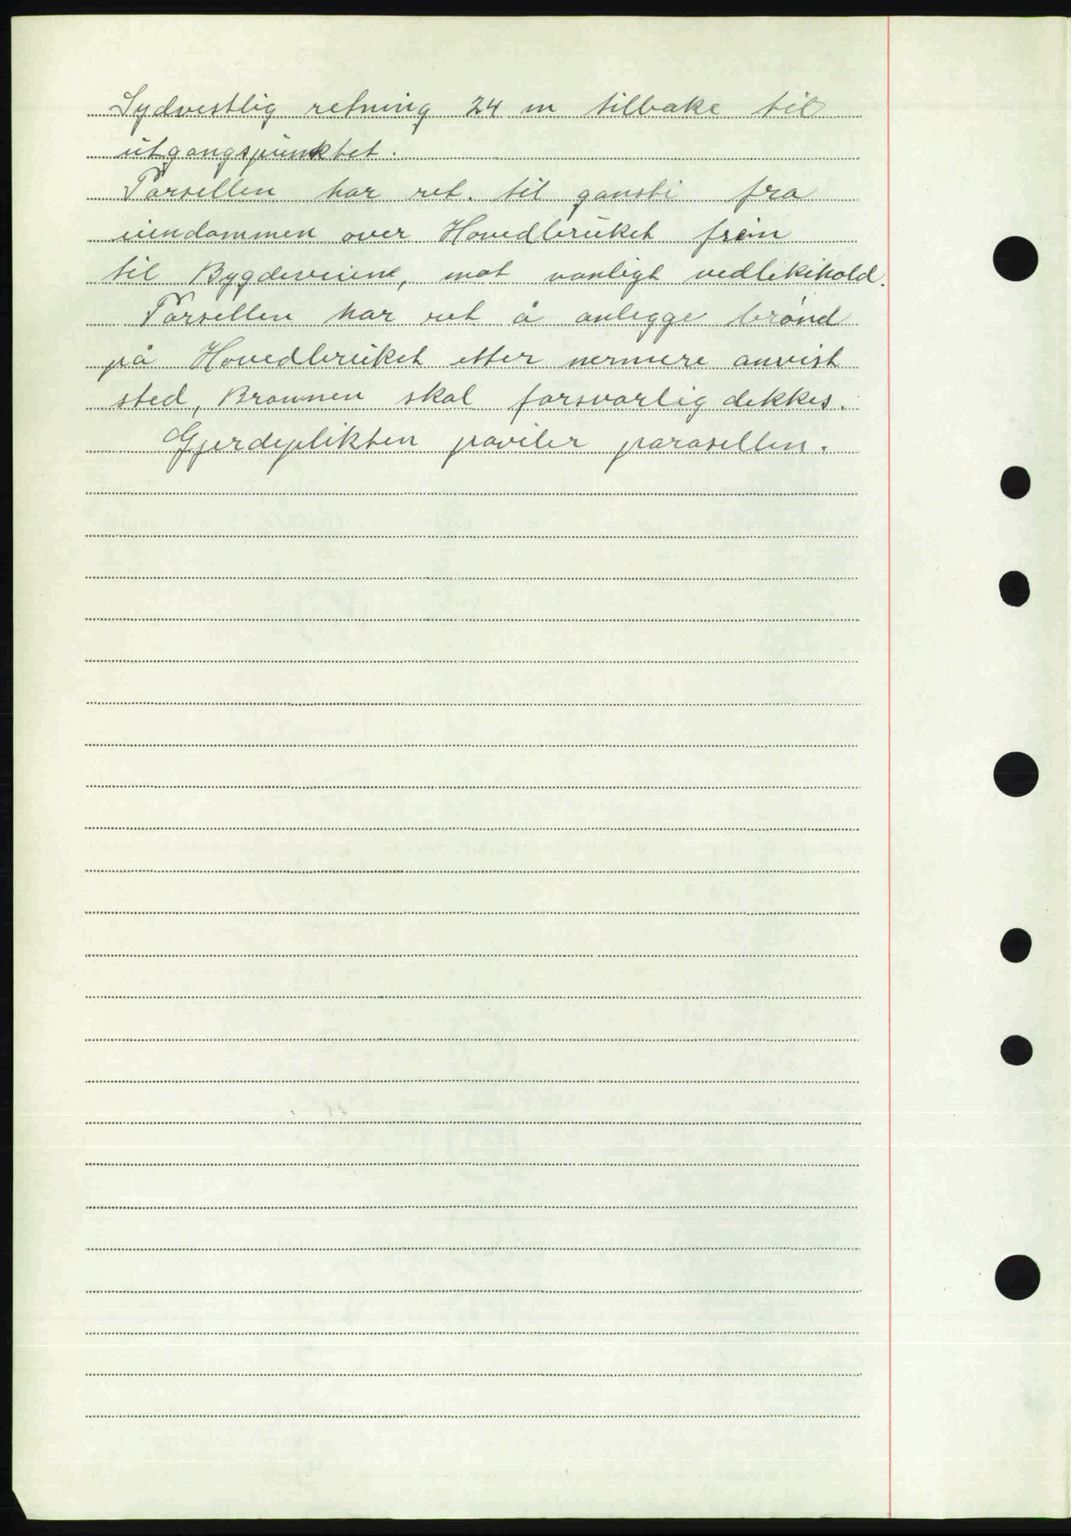 Sydvestlig retning 24 m tilbake til
utgangspunktet.
Parsellen har ret. til gansti fra
eiendommen over Hovedbruket frem
til Bygdeveiene, mot vanligt vedlikihold.
Parsellen har ret å anlegge brønd
på Hovedbruket etter nermere anvist
sted, Brønnen skal forsvarlig dekkes.
Gjerdeplikten påviler parasellen.